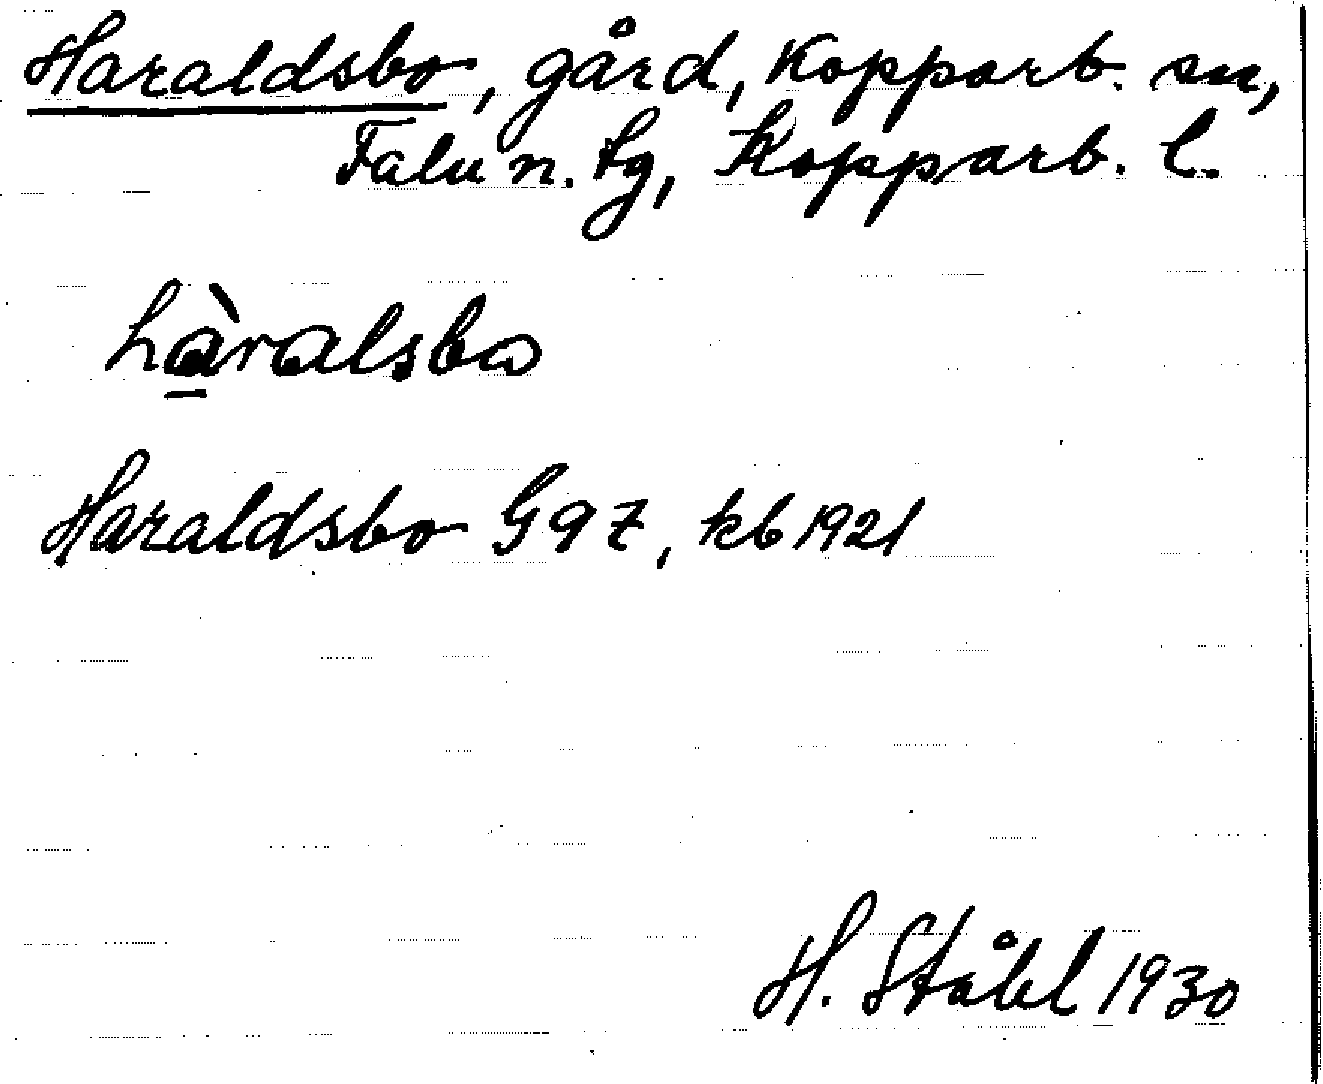 Haraldsbo, gård, Kopparb. sn,
Falu n. tg, Kopparb. l.
hàralsbo
Haraldsbo G 97, kb 1921
H. Ståhl 1930